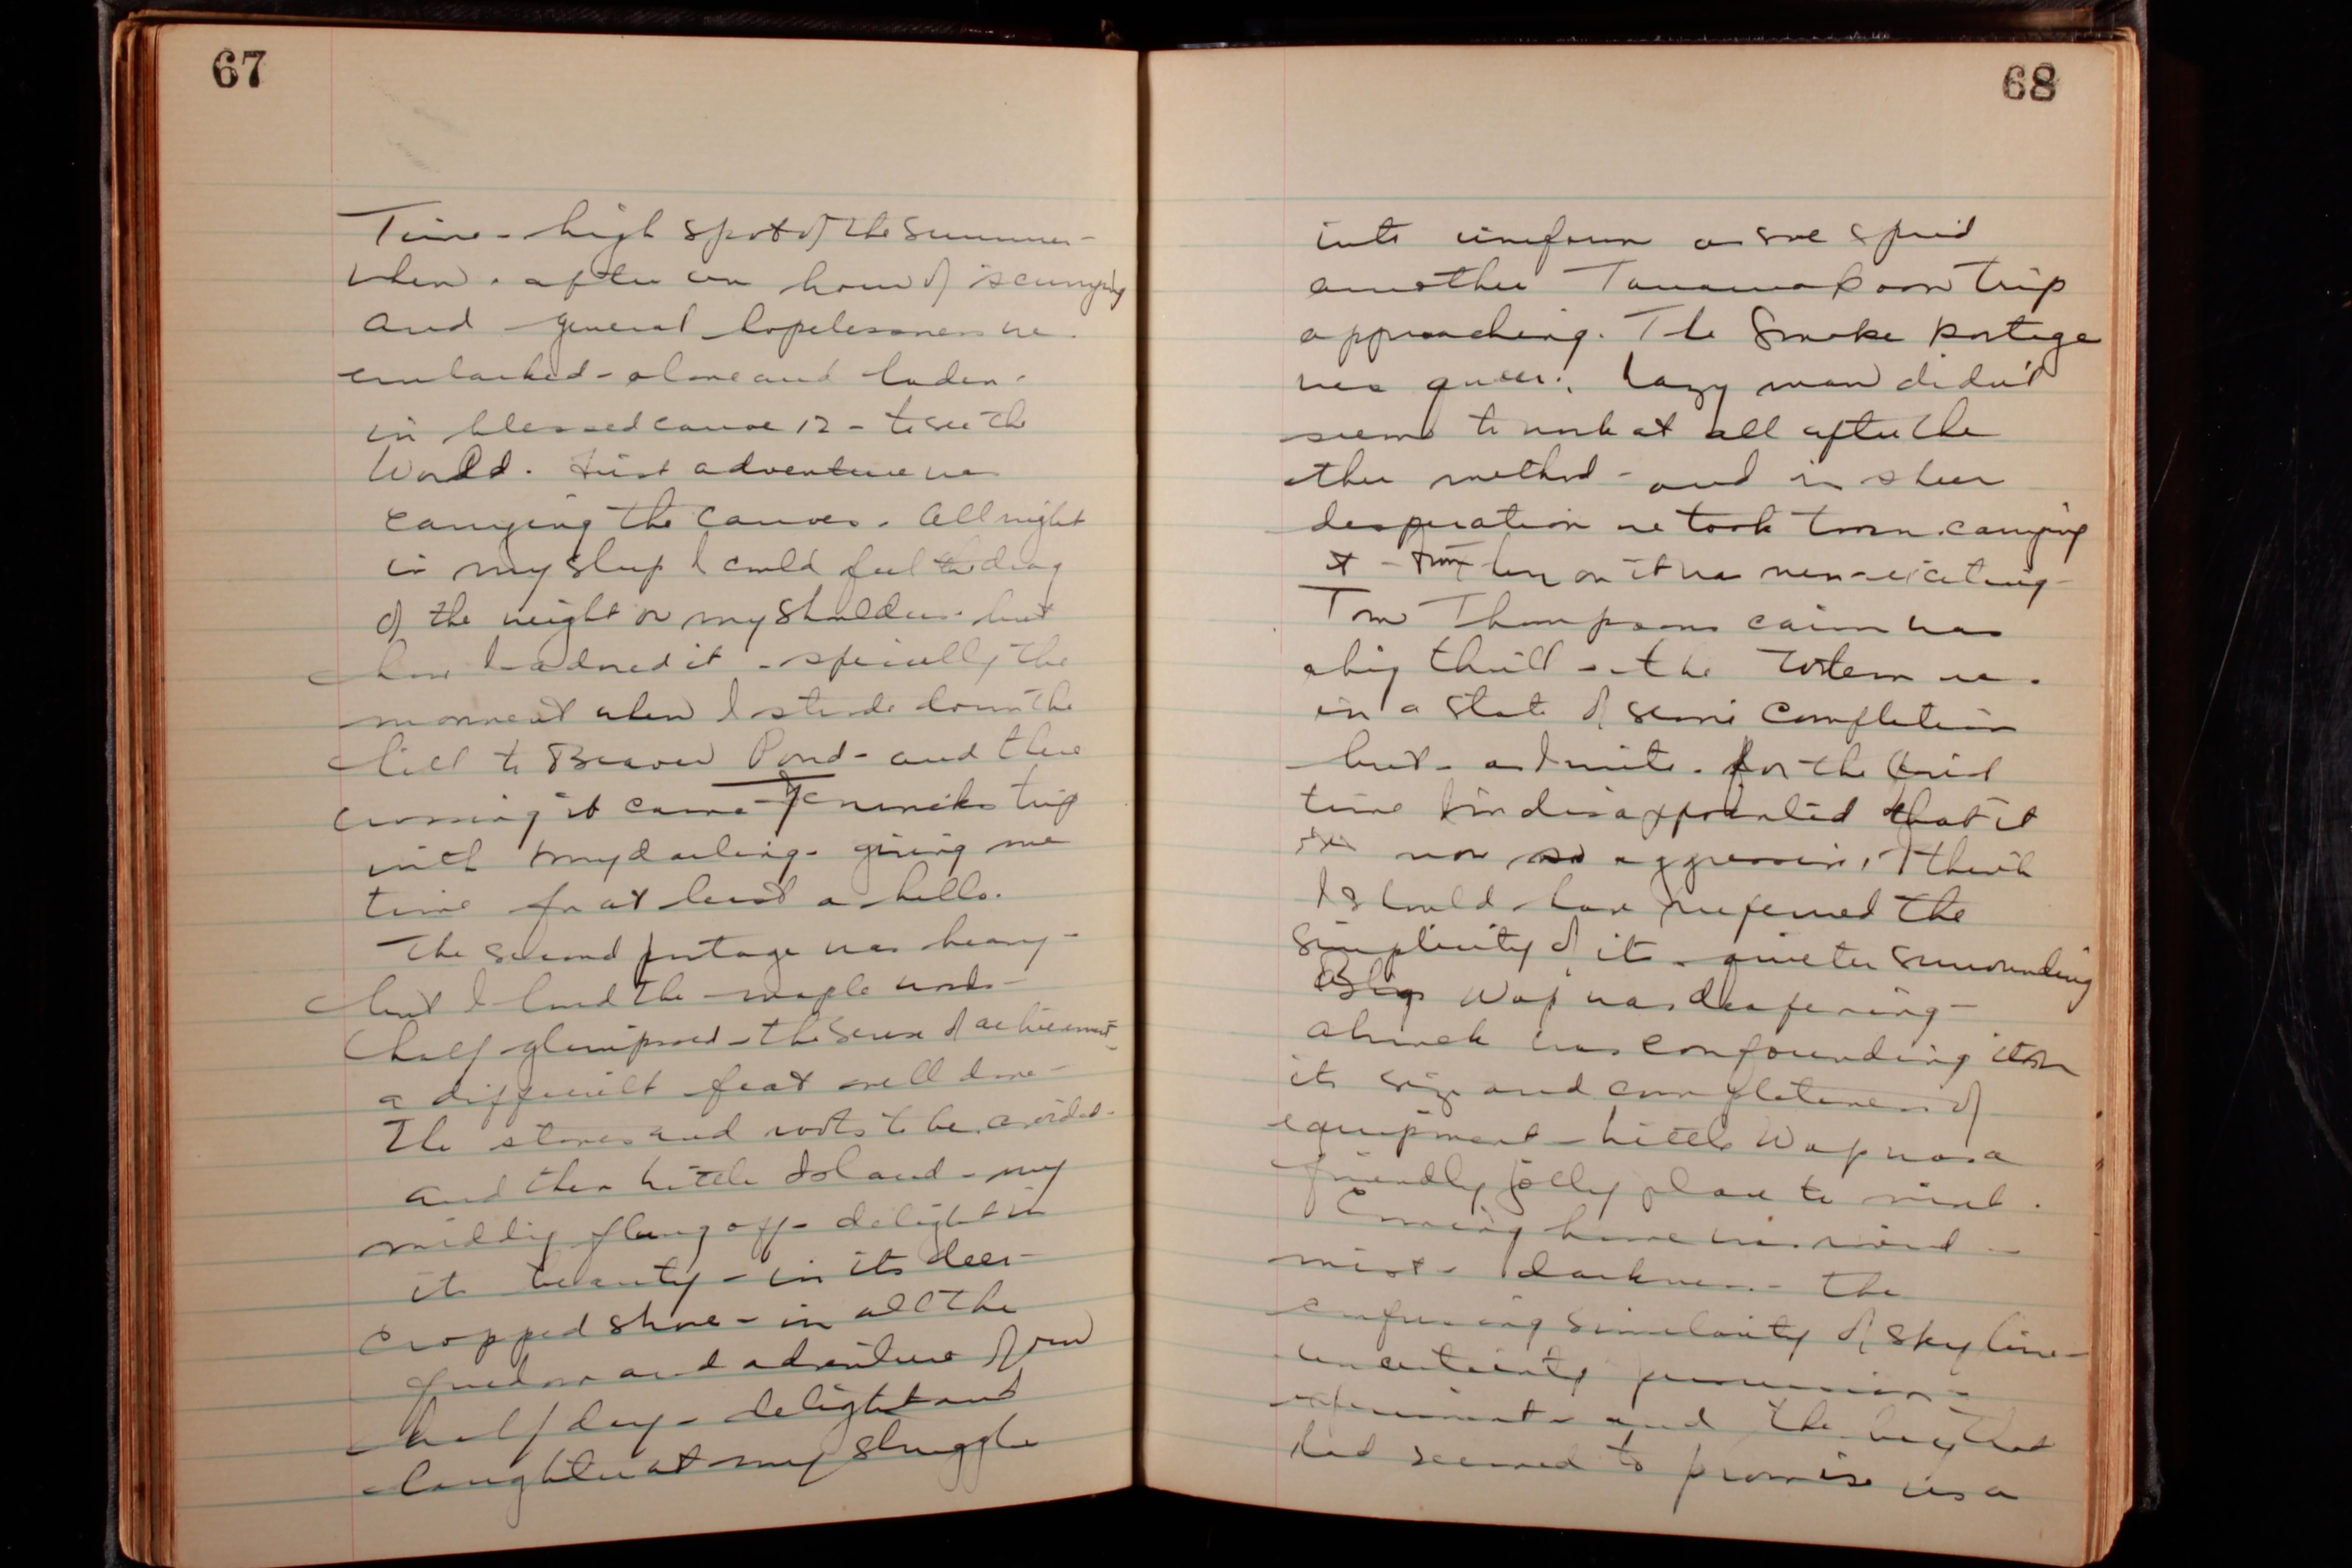 67
Time - high spot of the summer -
when - after an hour of scurrying
and general hopelessness we
embarked - alone and laden -
in blessed canoe 12 - to see the
World. First adventure was
carrying the canoes. All night
in my sleep I could feel the drag
of the weight on my shoulders - but
how I adored it - specially the
moment when I strode down the
hill to Beaver Pond - and there
crossing it came - weeks trip
with my darling - giving me
time for at least a hello.
The second portage was heavy -
but I loved the maple woods -
half glimpsed - the sense of achievement -
a difficult feat well done -
The stones and roots to be avoided -
and then Little Island - my
middy flung off - delight in
its beauty - in its deer -
cropped shore - in all the
freedom and adventure of our
half day - delight and
laughter at my struggle
68
into uniform as we spied
another Tanamakoon trip
approaching. The Smoke portage
was queer; lazy man didn't
seem to work at all after the
other method - and in sheer
desperation we took turn carrying
it - from here on it was new - exciting -
Tom Thompsons cairn was
a big thrill - the Totem was
in a state of semi completion
but - as I write - for the first
time I'm disappointed that it
now so aggressive, I think
I should have preferred the
simplicity of its quieter surrounding
Big Wap was deafening -
Ahmek was confounding in
its size and completeness of
equipment - Little Wap was a
friendly jolly place to visit.
Coming home was wind -
mist - darkness - the
confusing similarity of skyline -
uncertainty
experiment - and the bay that
had seemed to promise us a